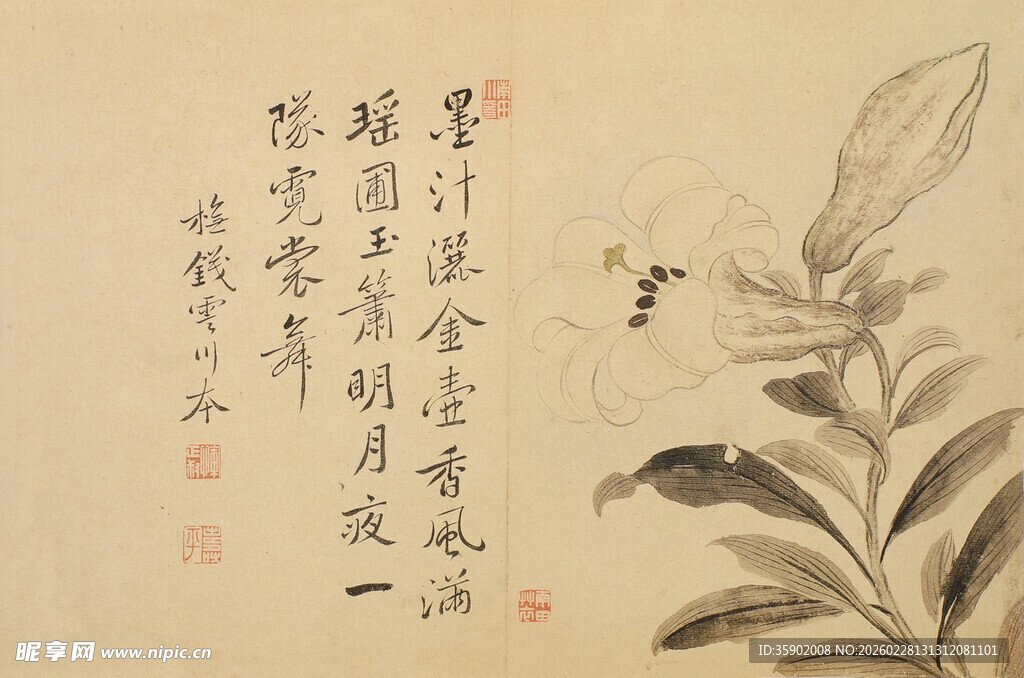 墨汁灑金壺香風滿
瑶圃玉簫明月夜一
隊霓裳舞
橅錢雲川本
昵享网 www.nipic.cn
ID:35902008 NO:20260228131312081101